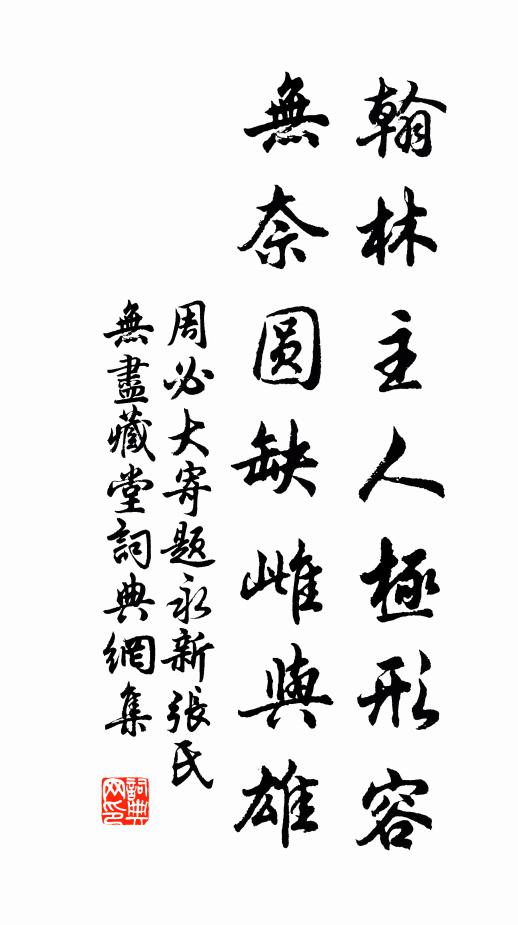 翰林主人極形容
無奈圆缺雌與雄
周必大寄题永新張氏
無盡藏堂詞典網集
詞典網印